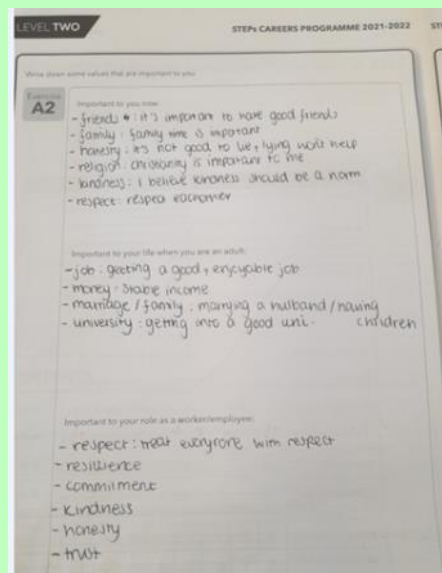 LEVEL TWO
STEPs CAREERS PROGRAMME 2021-2022
Write down some values that are important to you
Exercise
A2
Important to you now:
- friends : it's important to have good friends
- family : family time is important
- honesty : it's not good to lie, lying won't help
- religion : christianity is important to me
- kindness : I believe kindness should be a norm
- respect : respect eachother
Important to your life when you are an adult:
- job : getting a good, enjoyable job
- money : stable income
- marriage / family : marrying a husband / having children
- university : getting into a good uni.
Important to your role as a worker/employee:
- respect : treat everyone with respect
- resilience
- commitment
- kindness
- honesty
- trust